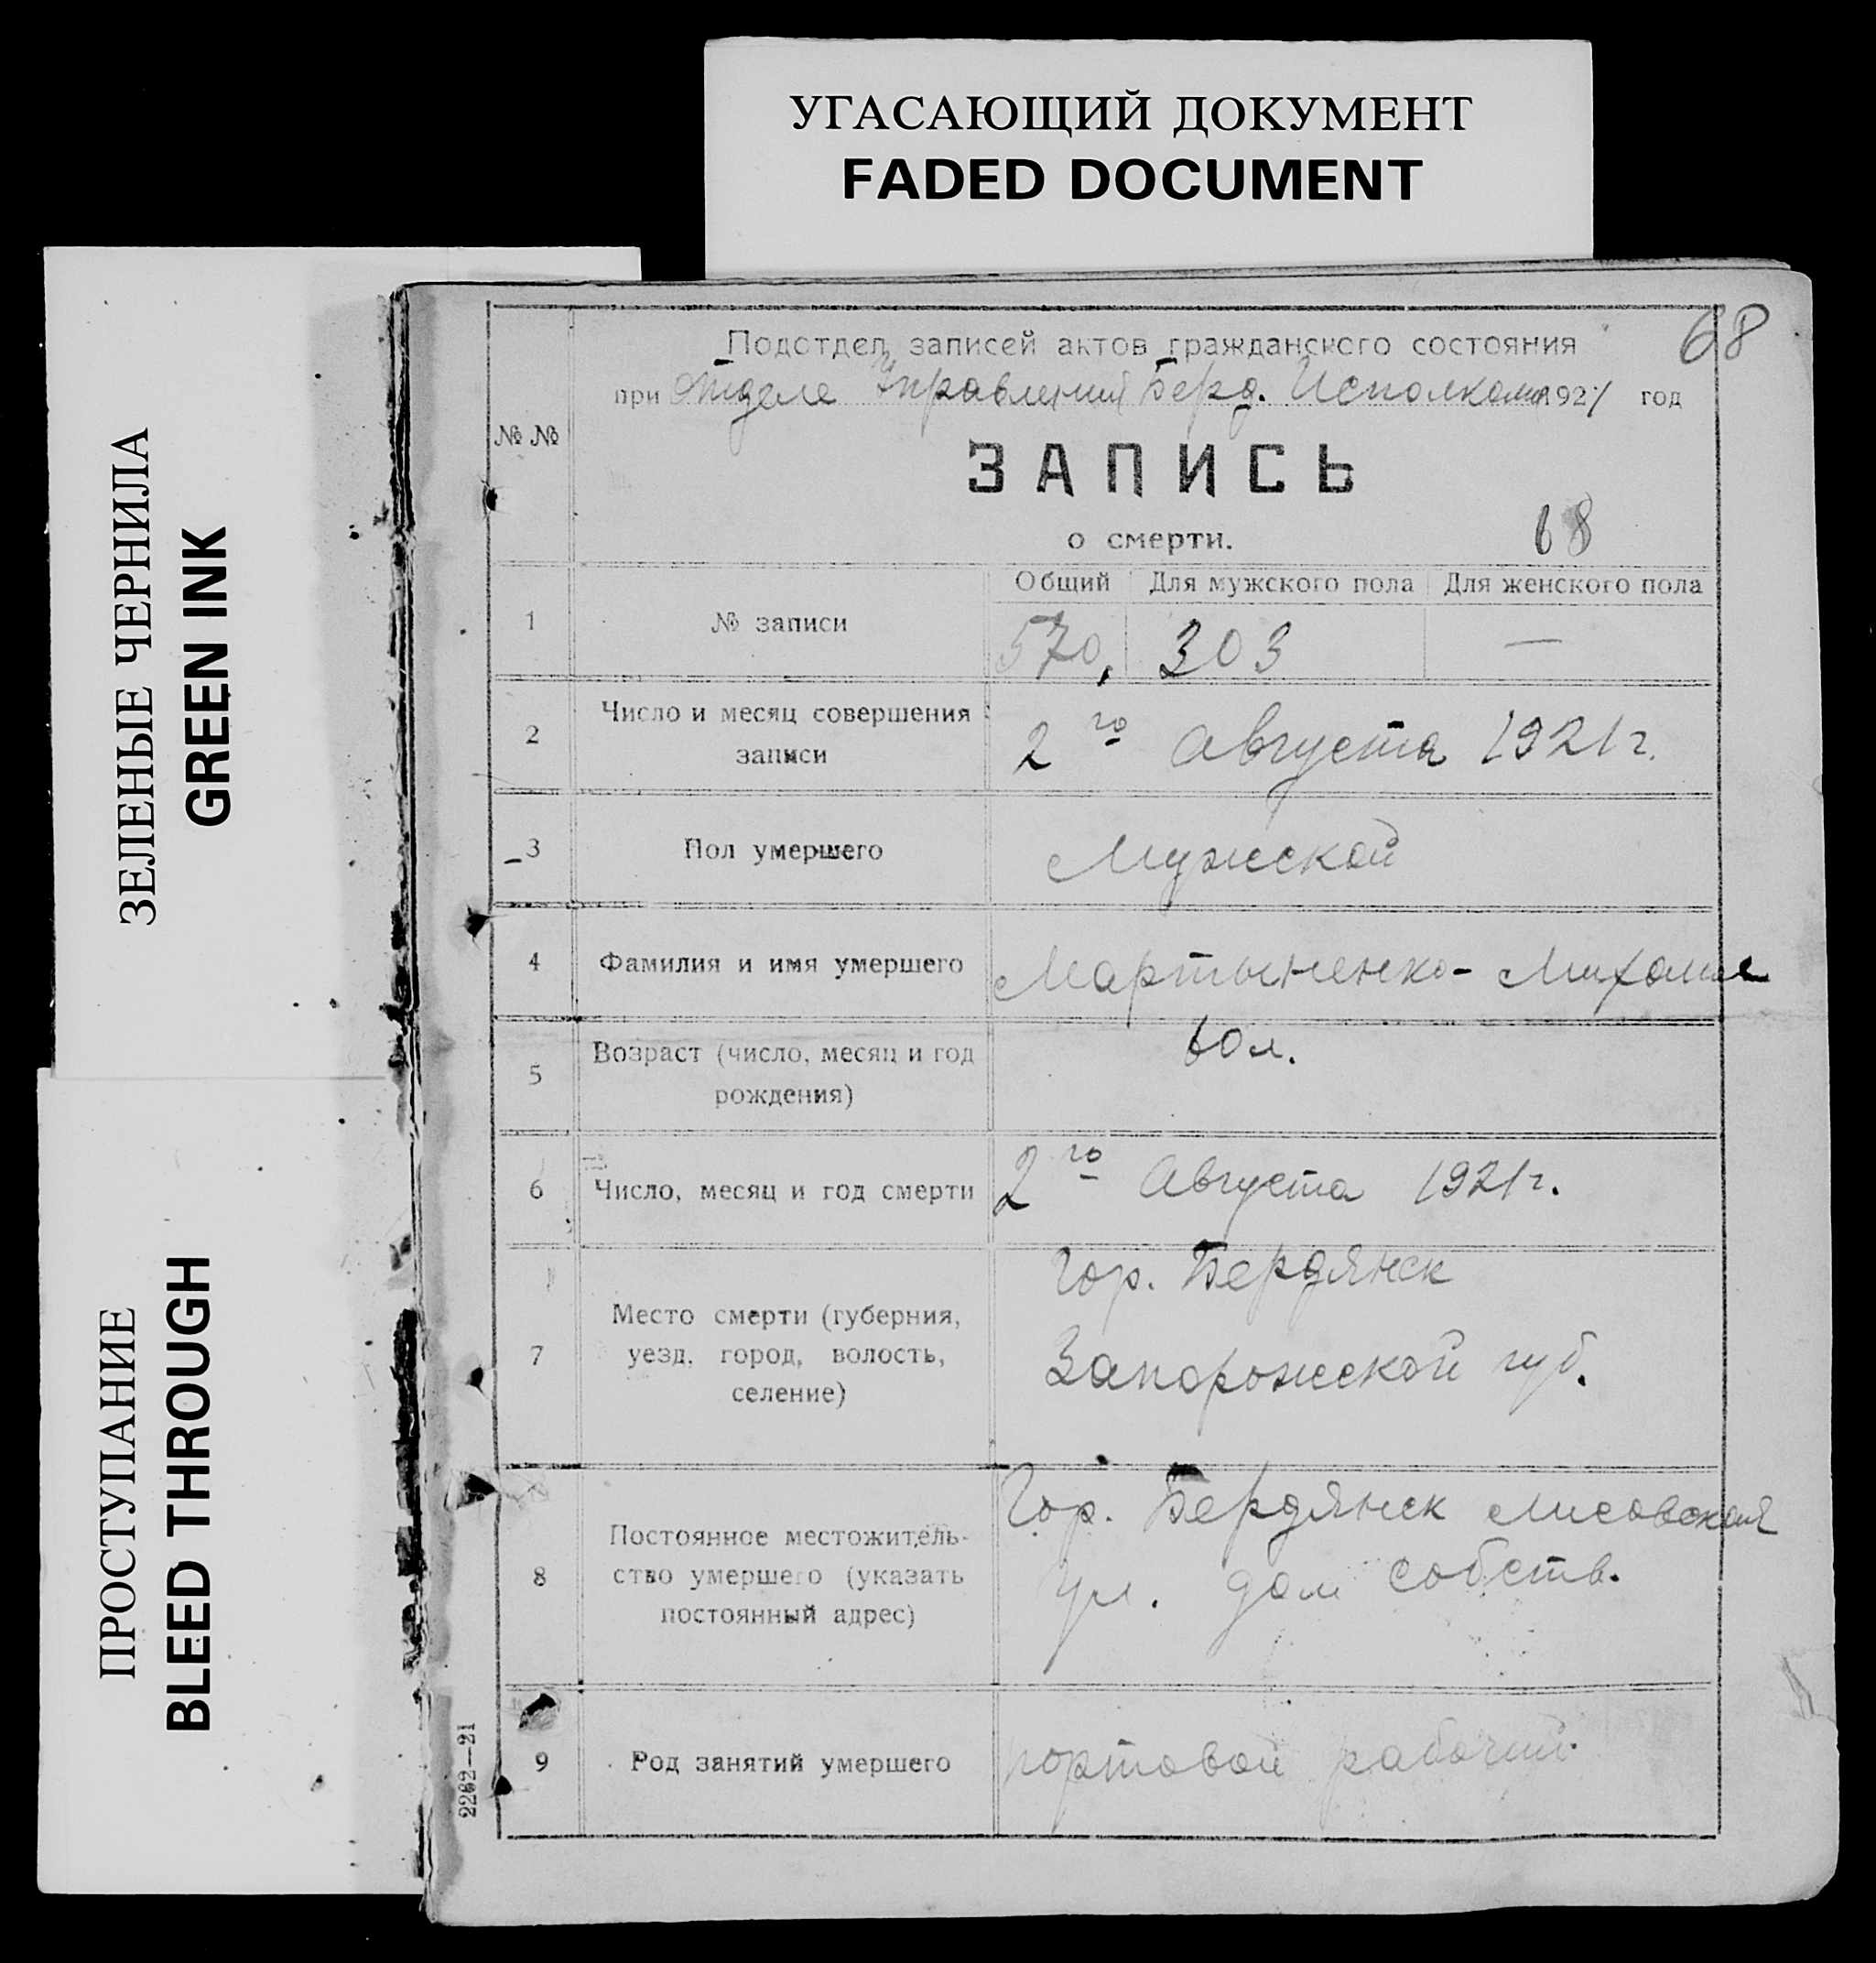 УГАСАЮЩИЙ ДОКУМЕНТ
FADED DOCUMENT
ЗЕЛЕНЫЕ ЧЕРНИЛА
GREEN INK
ПРОСТУПАНИЕ
BLEED THROUGH
68
Подотдел записей актов гражданского состояния
при Отделе Управления Берд. Исполкома 1921 год
№ №
ЗАПИСЬ
о смерти.
68
Общий Для мужского пола Для женского пола
1 № записи 570, 303 —
2 Число и месяц совершения
записи
2го Августа 1921 г.
3 Пол умершего Мужской
4 Фамилия и имя умершего Мартыненко - Михаил
5 Возраст (число, месяц и год
рождения)
60 л.
6 Число, месяц и год смерти 2го Августа 1921 г.
7 Место смерти (губерния,
уезд, город, волость,
селение)
Гор. Бердянск
Запорожской губ.
8 Постоянное местожитель-
ство умершего (указать
постоянный адрес)
Гор. Бердянск
ул. дом собств.
9 Род занятий умершего портовой рабочий.
2262—21